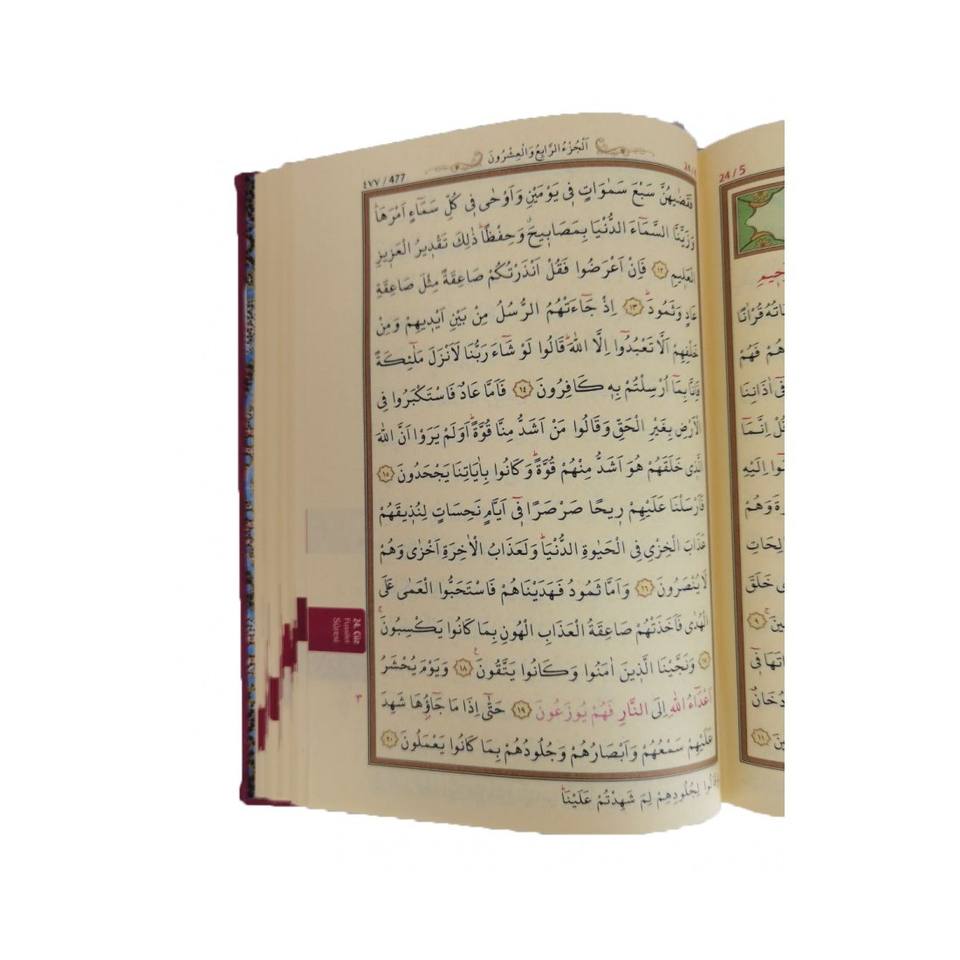 اَلْجُزْءُ الرَّابِعُ وَالْعِشْرُونَ
٤٧٧ / 477
فَقَضٰيهُنَّ سَبْعَ سَمٰوَاتٍ فٖي يَوْمَيْنِ وَاَوْحٰى فٖي كُلِّ سَمَٓاءٍ اَمْرَهَاۜ
وَزَيَّنَّا السَّمَٓاءَ الدُّنْيَا بِمَصَابٖيحَۗ وَحِفْظًاۜ ذٰلِكَ تَقْدٖيرُ الْعَزٖيزِ
الْعَلٖيمِ ﴿١٢﴾ فَاِنْ اَعْرَضُوا فَقُلْ اَنْذَرْتُكُمْ صَاعِقَةً مِثْلَ صَاعِقَةِ
عَادٍ وَثَمُودَۜ ﴿١٣﴾ اِذْ جَٓاءَتْهُمُ الرُّسُلُ مِنْ بَيْنِ اَيْدٖيهِمْ وَمِنْ
خَلْفِهِمْ اَلَّا تَعْبُدُٓوا اِلَّا اللّٰهَۜ قَالُوا لَوْ شَٓاءَ رَبُّنَا لَاَنْزَلَ مَلٰٓئِكَةً
فَاِنَّا بِمَٓا اُرْسِلْتُمْ بِهٖ كَافِرُونَ ﴿١٤﴾ فَاَمَّا عَادٌ فَاسْتَكْبَرُوا فِي
الْاَرْضِ بِغَيْرِ الْحَقِّ وَقَالُوا مَنْ اَشَدُّ مِنَّا قُوَّةًۜ اَوَلَمْ يَرَوْا اَنَّ اللّٰهَ
الَّذٖي خَلَقَهُمْ هُوَ اَشَدُّ مِنْهُمْ قُوَّةًۜ وَكَانُوا بِاٰيَاتِنَا يَجْحَدُونَ ﴿١٥﴾
فَاَرْسَلْنَا عَلَيْهِمْ رٖيحًا صَرْصَرًا فٖٓي اَيَّامٍ نَحِسَاتٍ لِنُذٖيقَهُمْ
عَذَابَ الْخِزْيِ فِي الْحَيٰوةِ الدُّنْيَاۜ وَلَعَذَابُ الْاٰخِرَةِ اَخْزٰى وَهُمْ
لَا يُنْصَرُونَ ﴿١٦﴾ وَاَمَّا ثَمُودُ فَهَدَيْنَاهُمْ فَاسْتَحَبُّوا الْعَمٰى عَلَى
الْهُدٰى فَاَخَذَتْهُمْ صَاعِقَةُ الْعَذَابِ الْهُونِ بِمَا كَانُوا يَكْسِبُونَۚ
﴿١٧﴾ وَنَجَّيْنَا الَّذٖينَ اٰمَنُوا وَكَانُوا يَتَّقُونَ۟ ﴿١٨﴾ وَيَوْمَ يُحْشَرُ
اَعْدَٓاءُ اللّٰهِ اِلَى النَّارِ فَهُمْ يُوزَعُونَ ﴿١٩﴾ حَتّٰٓى اِذَا مَا جَٓاؤُ۫هَا شَهِدَ
عَلَيْهِمْ سَمْعُهُمْ وَاَبْصَارُهُمْ وَجُلُودُهُمْ بِمَا كَانُوا يَعْمَلُونَ ﴿٢٠﴾
وَقَالُوا لِجُلُودِهِمْ لِمَ شَهِدْتُمْ عَلَيْنَاۜ
24. Cüz
Fussilet
Sûresi
٣
24 / 5
قُرْاٰنًا
فَهُمْ
اٰذَانِنَا
اِنَّمَا
اِلَيْهِ
وَهُمْ
خَلَقَ
﴿٩﴾
دُخَانٌ
﴿١١﴾